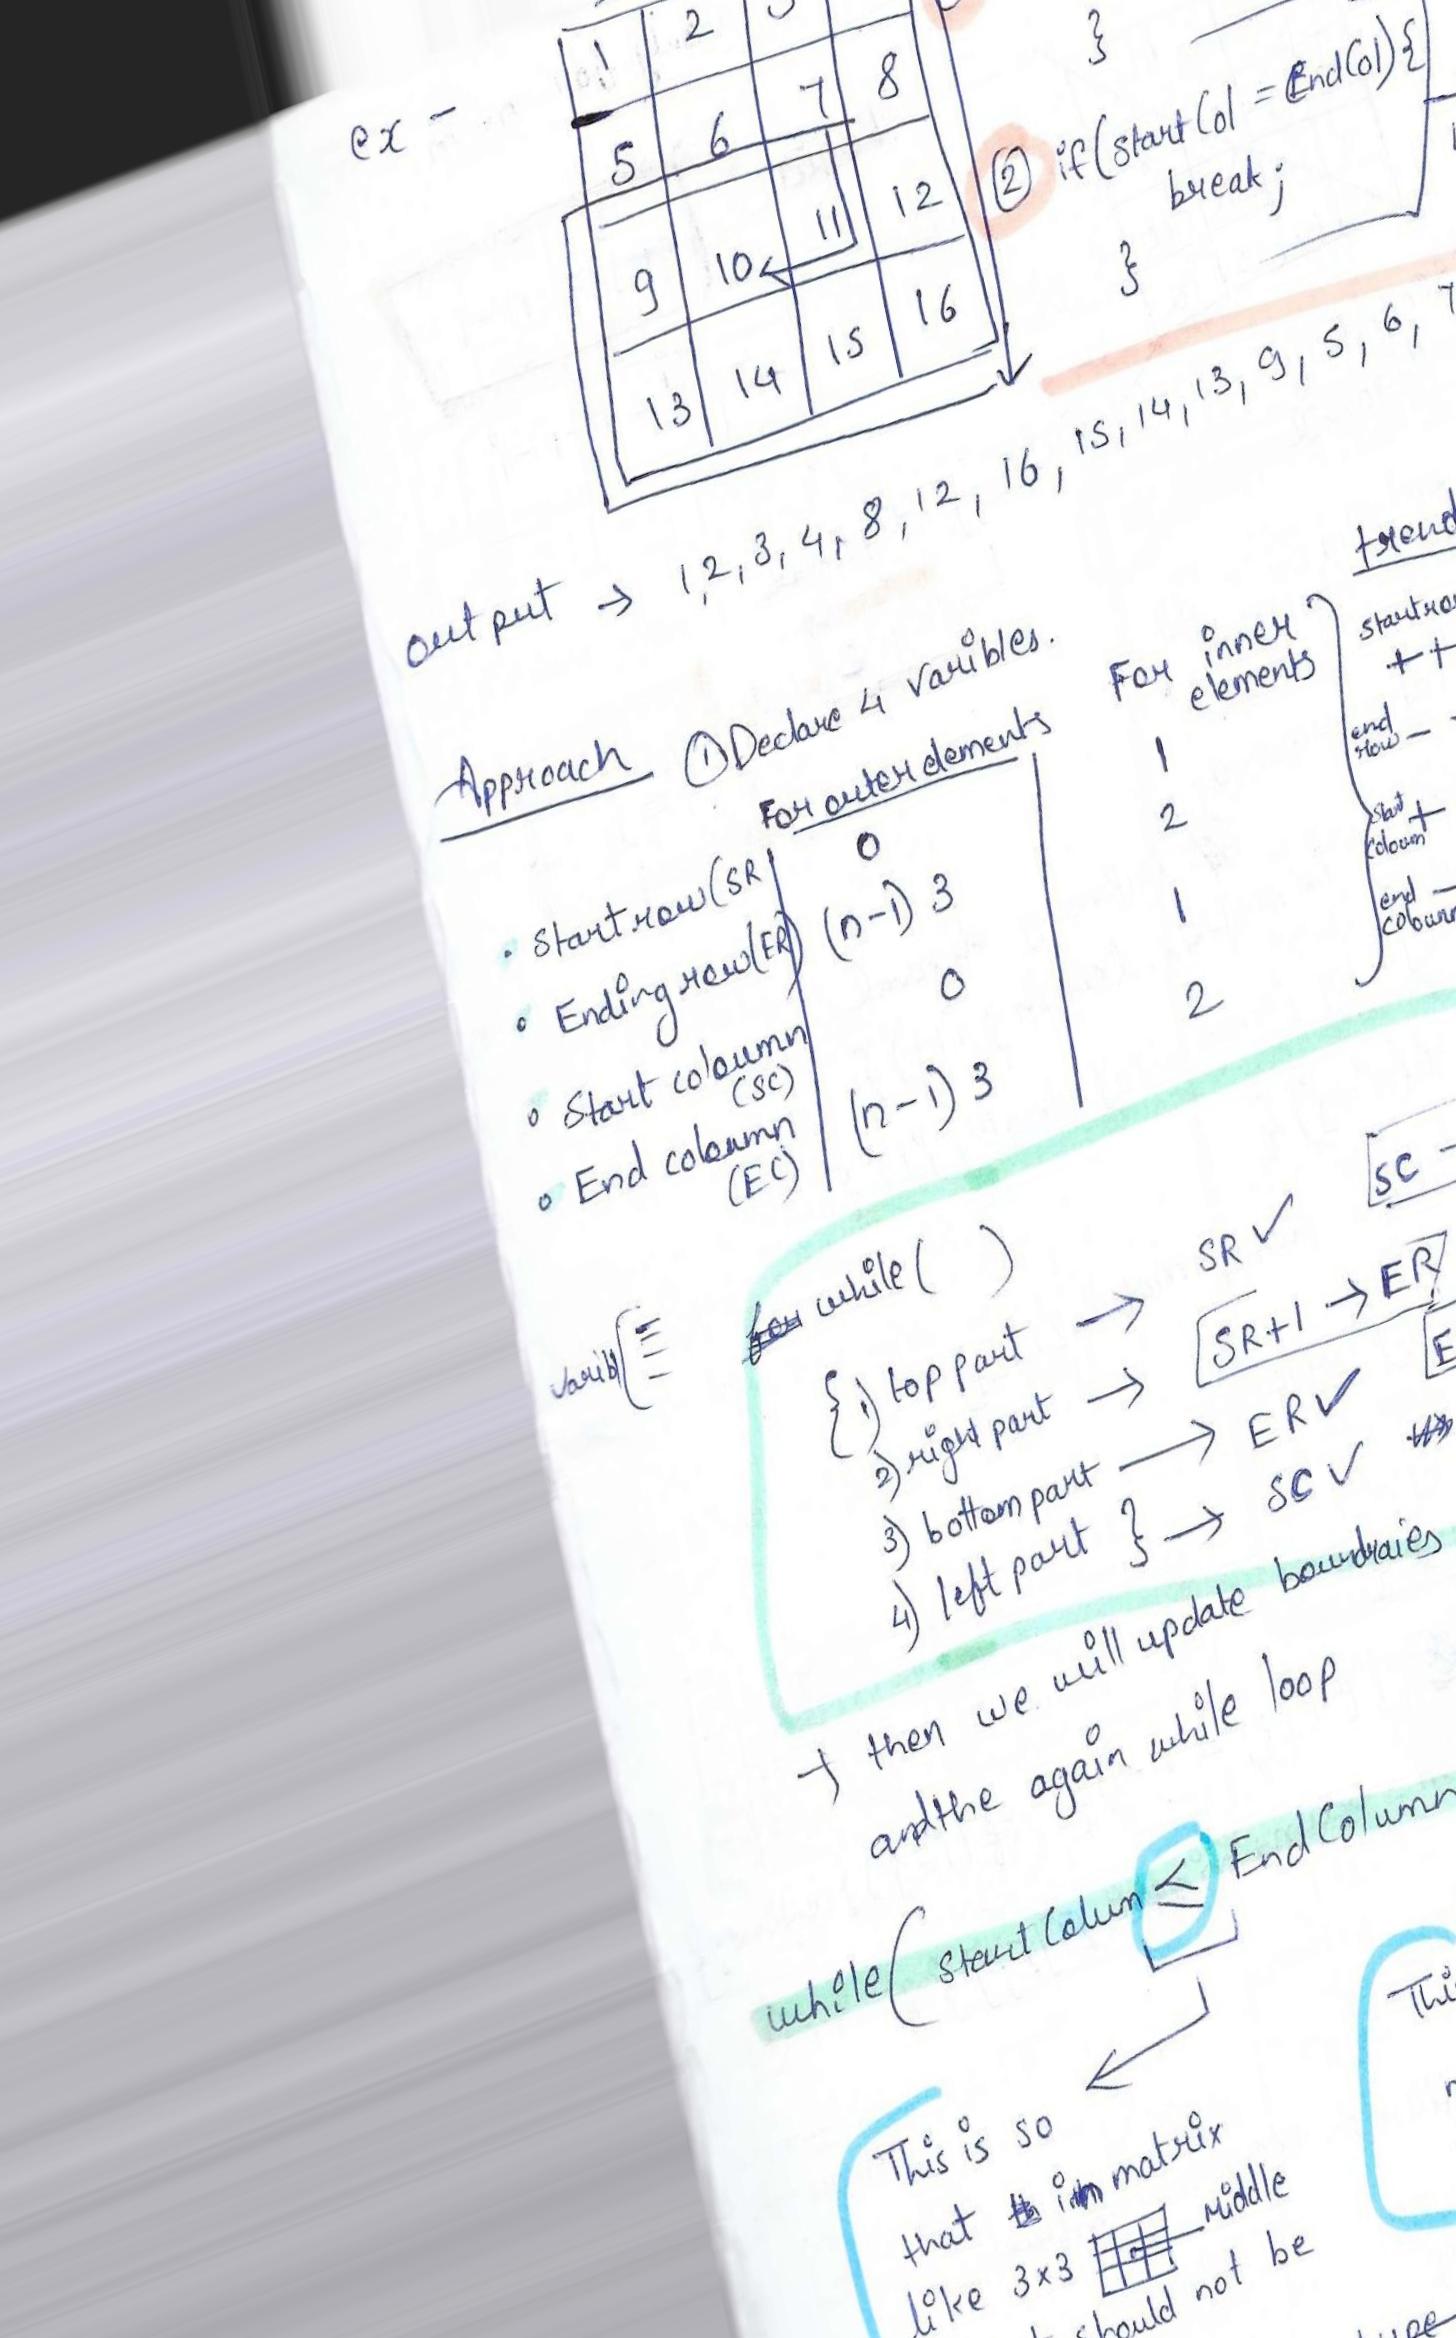 }
ex -
1 2 3
5 6 7 8
9 10 11 12
13 14 15 16
② if(startCol = EndCol){
break;
}
output → 1,2,3,4,8,12,16,15,14,13,9,5,6,7
Approach ①Declare 4 varibles.
For outer elements
For inner
elements
trend
• Start row(SR 0 1
startro
++
• Ending row(ER) (n-1) 3 2
end
row -
• Start coloumn
(SC) 0 1
start +
coloum
• End coloumn
(EC) (n-1) 3 2
end -
coloumn
varibl
for while( )
{1) top part → SR ✓ SC -
2) right part → SR+1 → ER
3) bottom part → ER ✓ E
4) left part } → SC ✓
→ then we will update boundraies
andthe again while loop
while(Start Colum ≤ End Column
This is so
that in matrix
like 3x3 middle
should not be
Thi